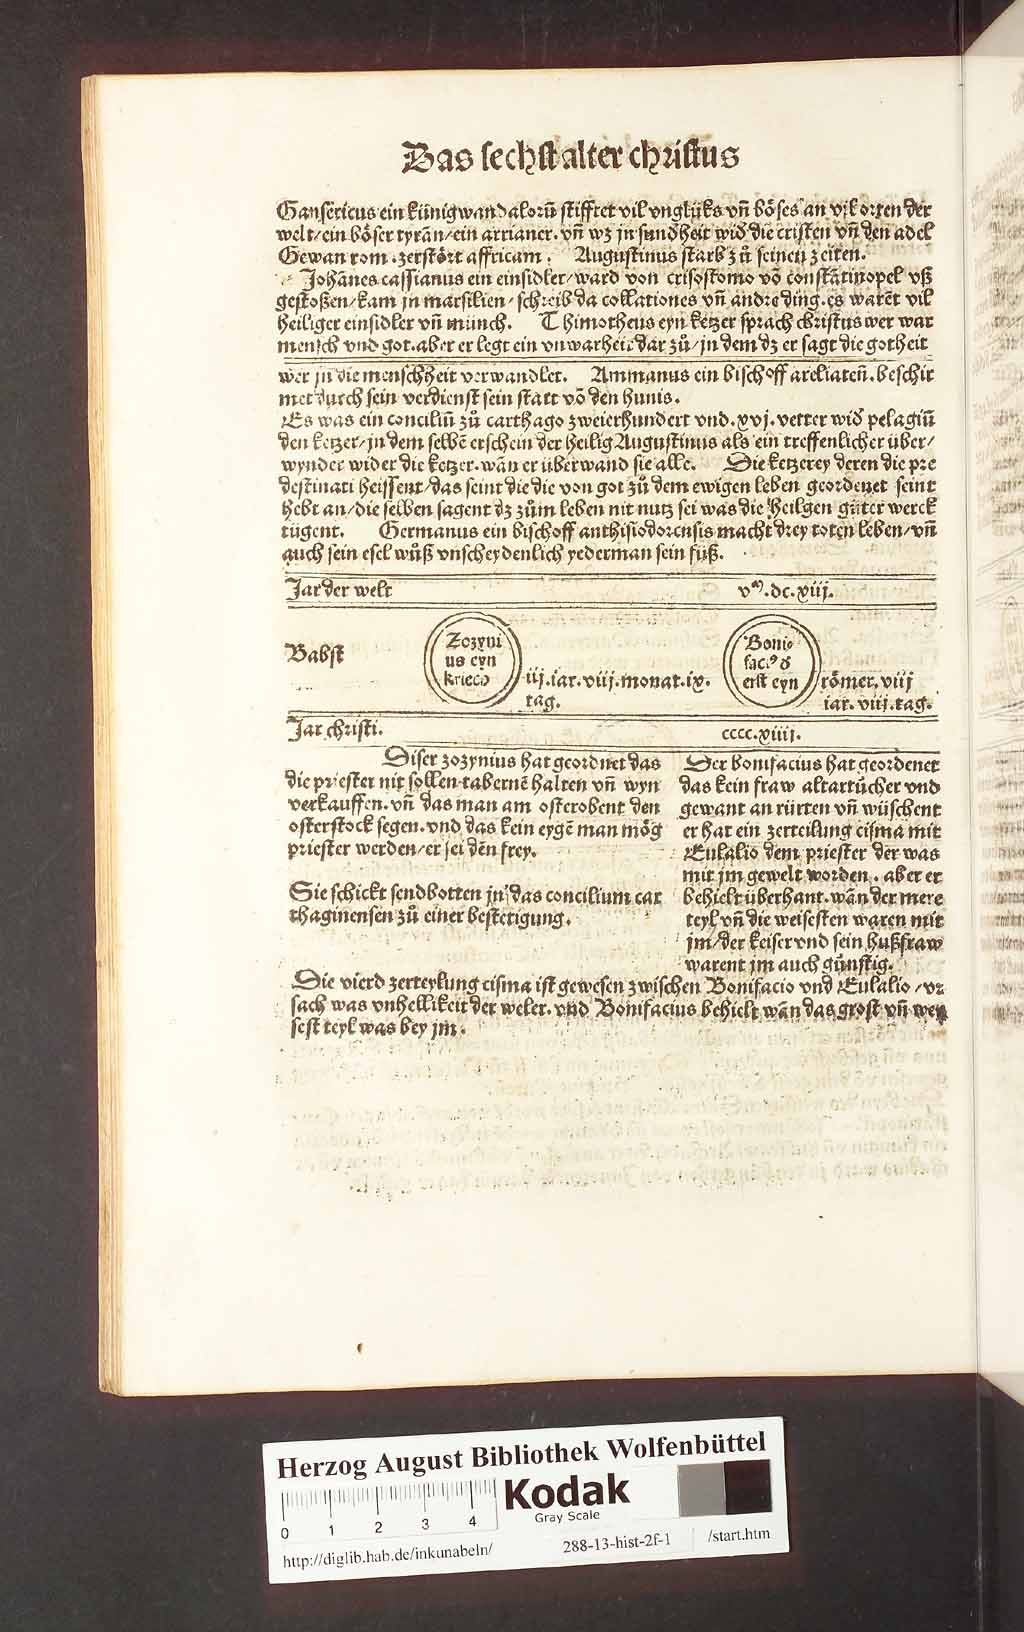 Das sechst alter christus
Gansericus ein künig wandaloru͂ stifftet vil vnglüks vn͂ böses an vil orten der
welt/ein böser tyra͂n/ein arrianer. vn͂ wz jn sundheit wid͛ die cristen vn͂ den adel
Gewan rom. zerstört affricam. Augustinus starb zů seinen zeiten.
Joha͂nes cassianus ein einsidler/ward von crisostomo vo͂ consta͂tinopel vß
gestoßen/kam jn marsilien/schreib da collationes vn͂ andre ding. es ware͂t vil
heiliger einsidler vn͂ münch. Thimotheus eyn ketzer sprach christus wer war
mensch vnd got. aber er legt ein vnwarheit dar zů/jn dem dz er sagt die gotheit
wer jn die menschheit verwandlet. Ammanus ein bischoff areliaten͂. beschir
met durch sein verdienst sein statt vo͂ den hunis.
Es was ein conciliu͂ zů carthago zweierhundert vnd. xvj. vetter wid͛ pelagiu͂
den ketzer/jn dem selbe͂ erschein der heilig Augustinus als ein treffenlicher über/
wynder wider die ketzer. wa͂n er überwand sie alle. Die ketzerey deren die pre
destinati heissent/das seint die die von got zů dem ewigen leben geordenet seint
hebt an/die selben sagent dz zům leben nit nutz sei was die heilgen gůter werck
tügent. Germanus ein bischoff anthisiodorensis macht drey toten leben/vn͂
auch sein esel wůß vnscheydenlich yederman sein füß.
Jar der welt vͫ.dc.xiij.
Babst
Zozyni
us eyn
kriech
iij.iar.viij.monat.ix.
tag.
Boni
facꝰ d͛
erst eyn
römer.viij
iar.viij.tag.
Jar christi. cccc.xiiij.
Diser zozynius hat geordnet das
die priester nit sollen taberne͂ halten vn͂ wyn
verkauffen. vn͂ das man am osterobent den
osterstock segen. vnd das kein eyge͂ man mög
priester werden/er sei de͂n frey.
Sie schickt sendbotten jn das concilium car
thaginensen zů einer bestetigung.
Der bonifacius hat geordenet
das kein fraw altartůcher vnd
gewant an rürten vn͂ wüschent
er hat ein zerteilung cisma mit
Eulalio dem priester der was
mit jm gewelt worden. aber er
behielt überhant. wa͂n der mere
teyl vn͂ die weisesten waren mit
jm/der keiser vnd sein hußfraw
warent jm auch günstig.
Die vierd zerteylung cisma ist gewesen zwischen Bonifacio vnd Eulalio/vr
sach was vnhellikeit der weler. vnd Bonifacius behielt wa͂n das grost vn͂ wey
sest teyl was bey jm.
Herzog August Bibliothek Wolfenbüttel
0 1 2 3 4
Kodak
Gray Scale
http://diglib.hab.de/inkunabeln/ 288-13-hist-2f-1 /start.htm